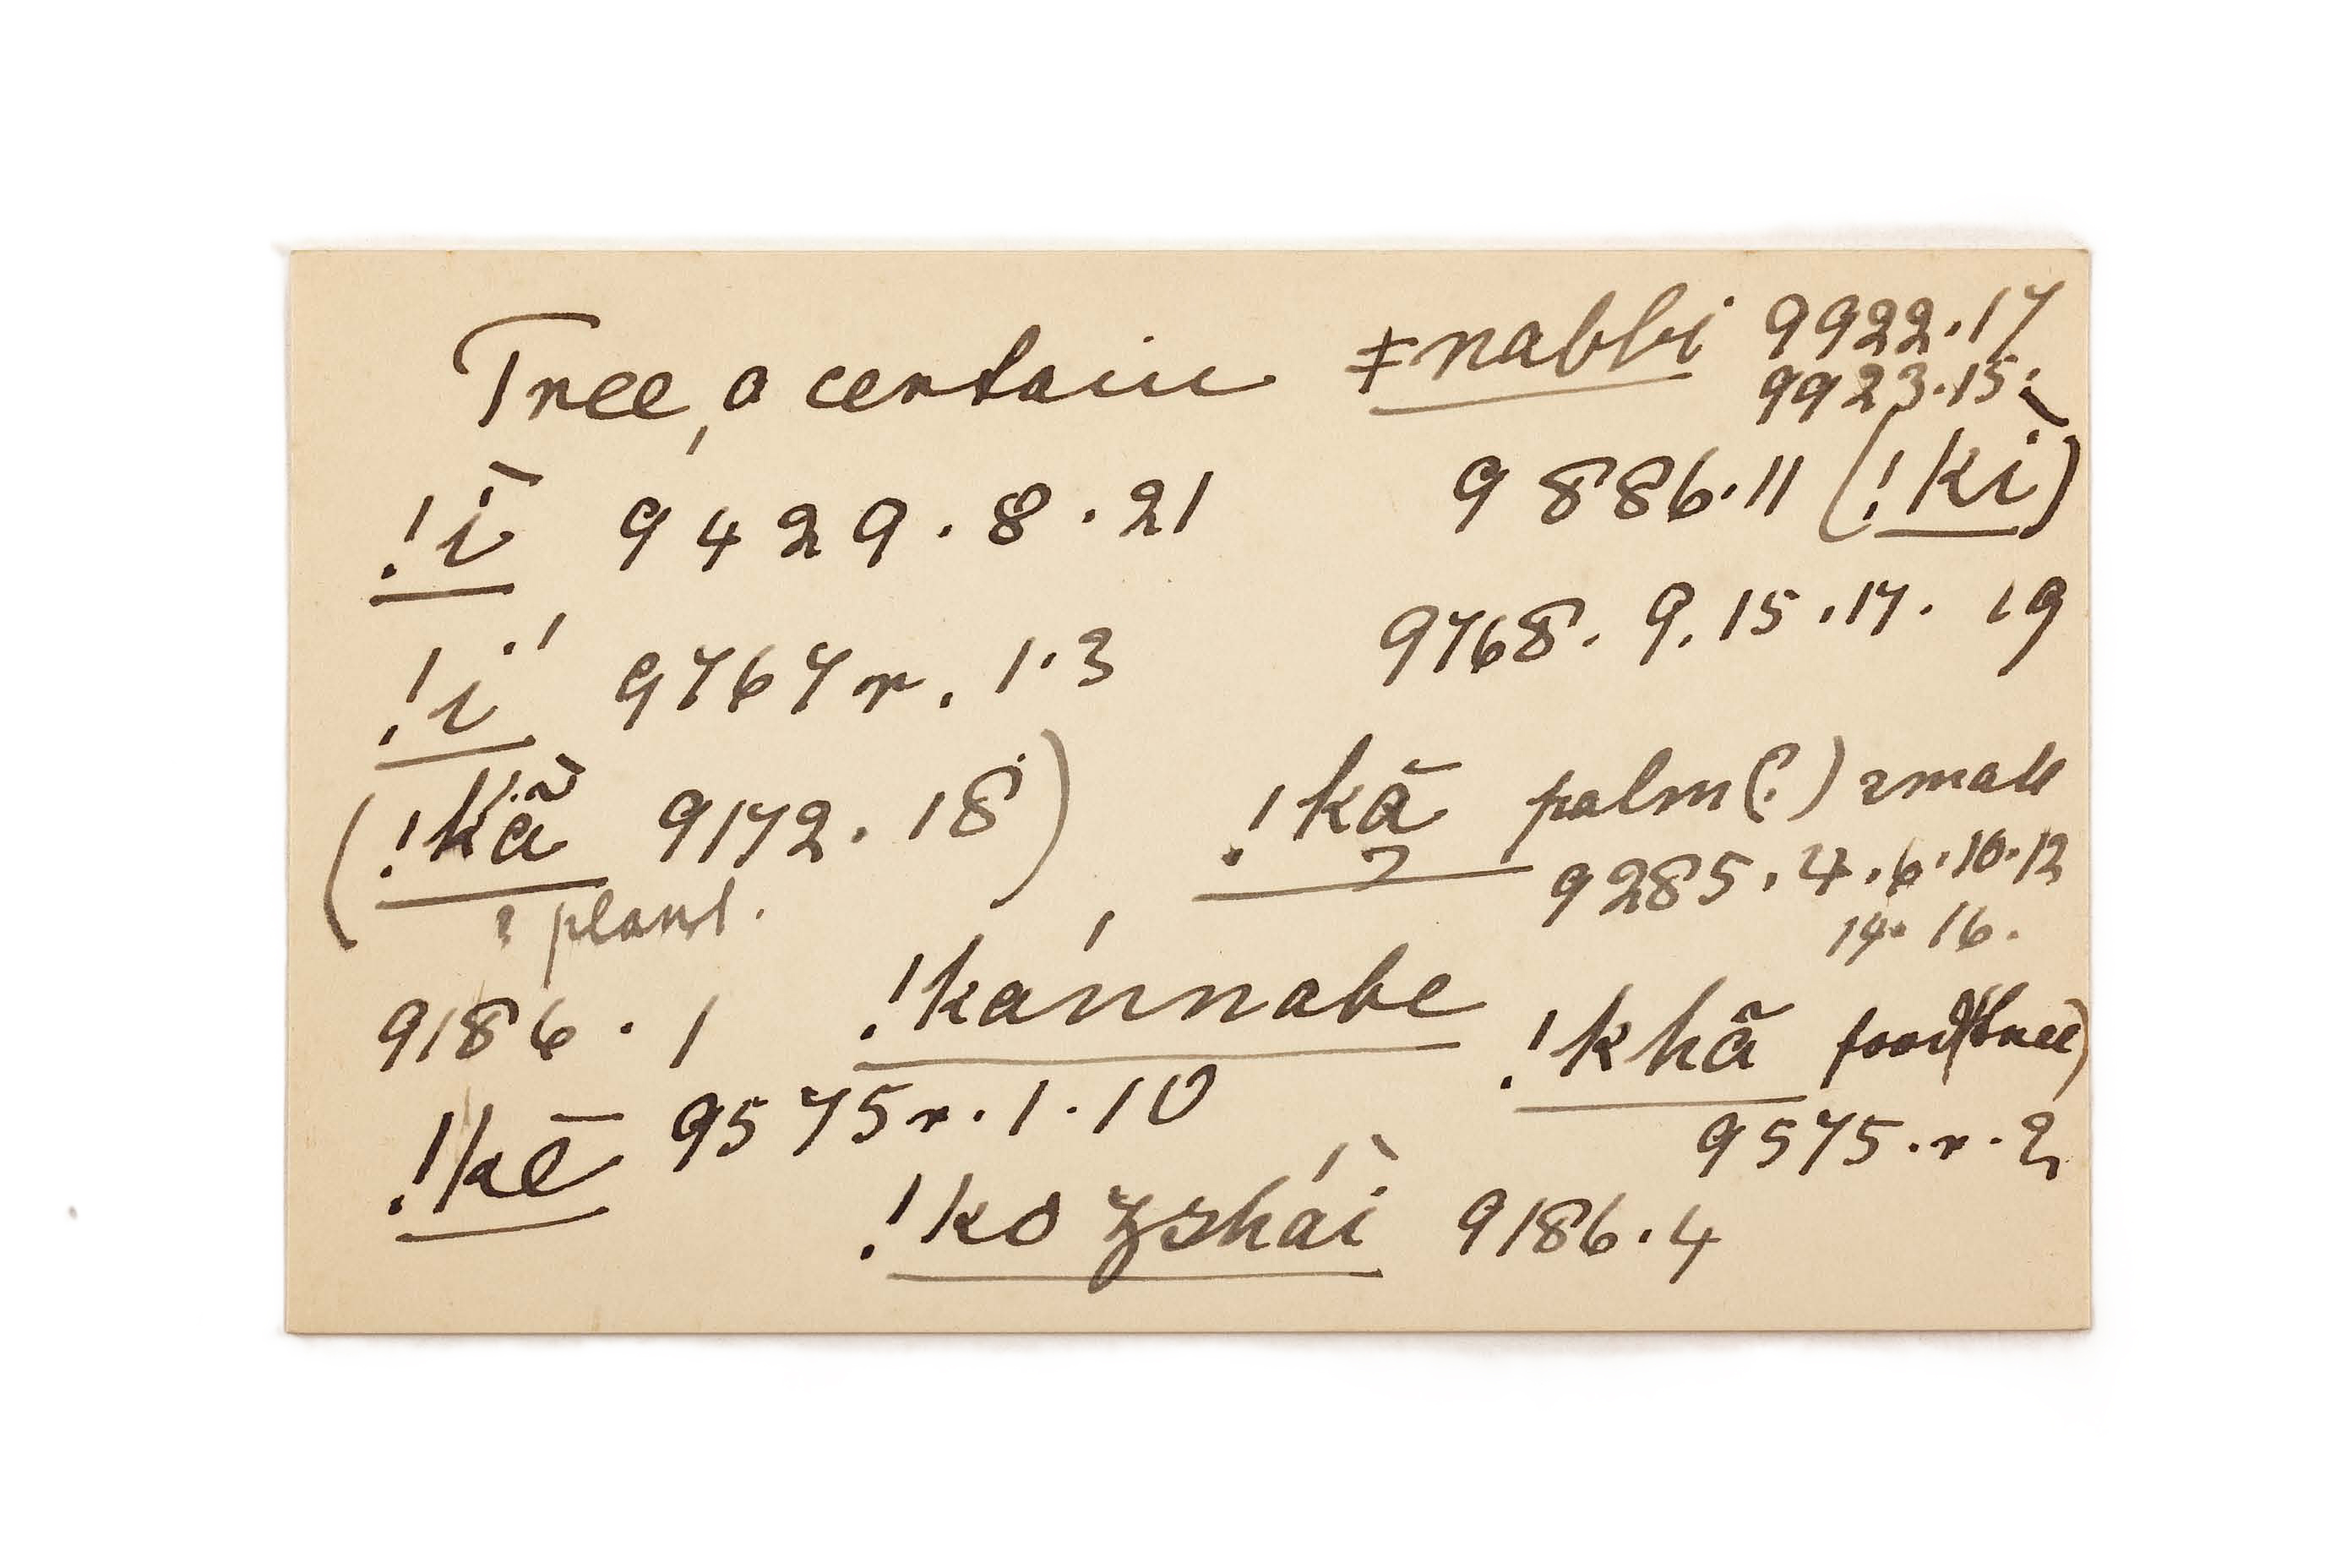 Tree, a certain ǂnabbi 9922.17
9923.15.
!ī 9429.8.21 9886.11 (!kĭ)
!í 9767r.1.3 9768.9.15.17.19
(!kã 9172.18) !kā palm(?) small
? plant. 9285.4.6.10.12
14.16.
9186.1 !kánnabe !khā food (tree)
!kē 9575r.1.10 9575.r.2
!ko zshái 9186.4